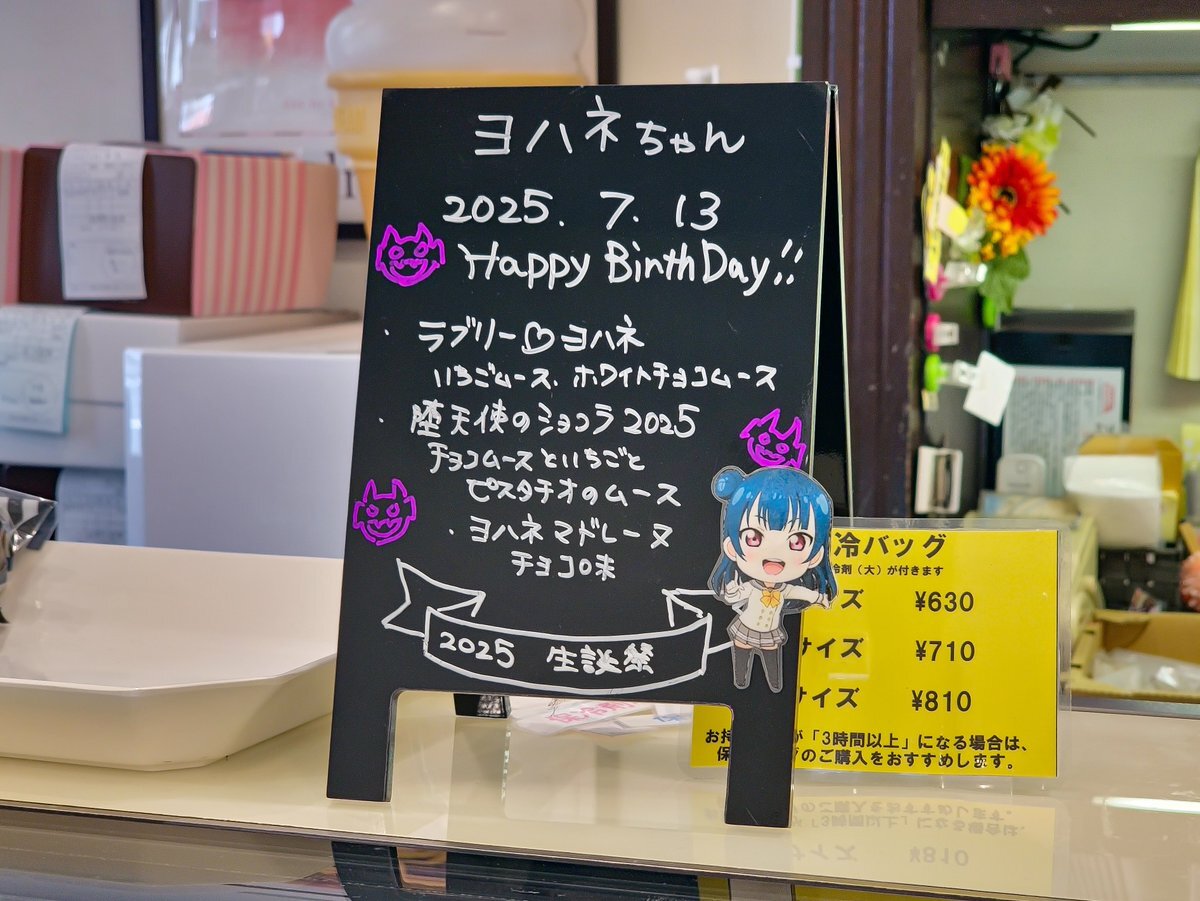 ヨハネちゃん
2025. 7. 13
Happy BirthDay!!
・ラブリー♡ヨハネ
いちごムース、ホワイトチョコムース
・堕天使のショコラ2025
チョコムースといちごと
ピスタチオのムース
・ヨハネマドレーヌ
チョコ味
2025 生誕祭
冷バッグ
冷剤(大)が付きます
ズ ¥630
サイズ ¥710
サイズ ¥810
お持 が「3時間以上」になる場合は、
保 グのご購入をおすすめします。